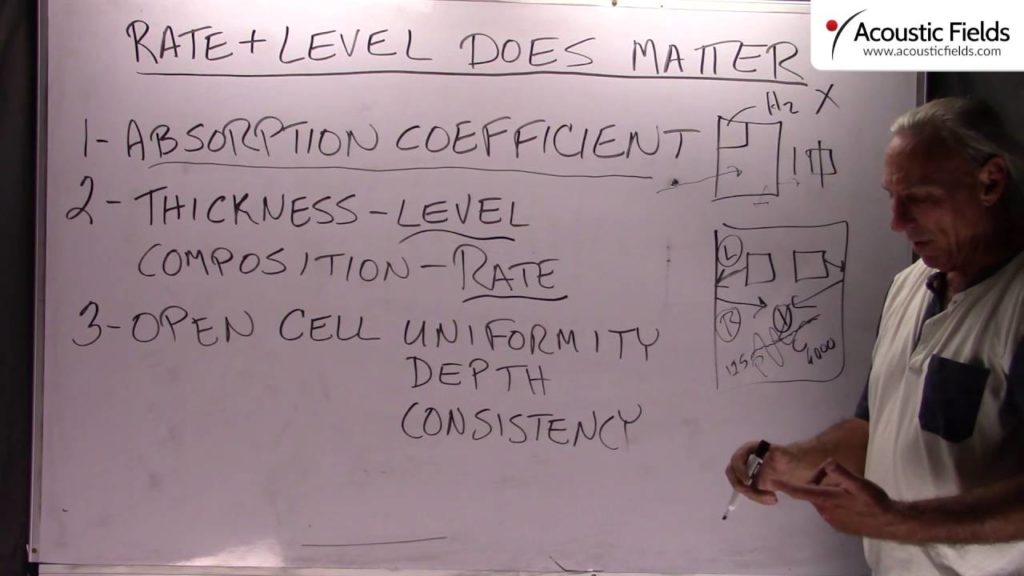 Acoustic Fields
www.acousticfields.com
RATE + LEVEL DOES MATTER
1- ABSORPTION COEFFICIENT
Hz X
2- THICKNESS - LEVEL
COMPOSITION - RATE
3- OPEN CELL UNIFORMITY
DEPTH
CONSISTENCY
L
R
125